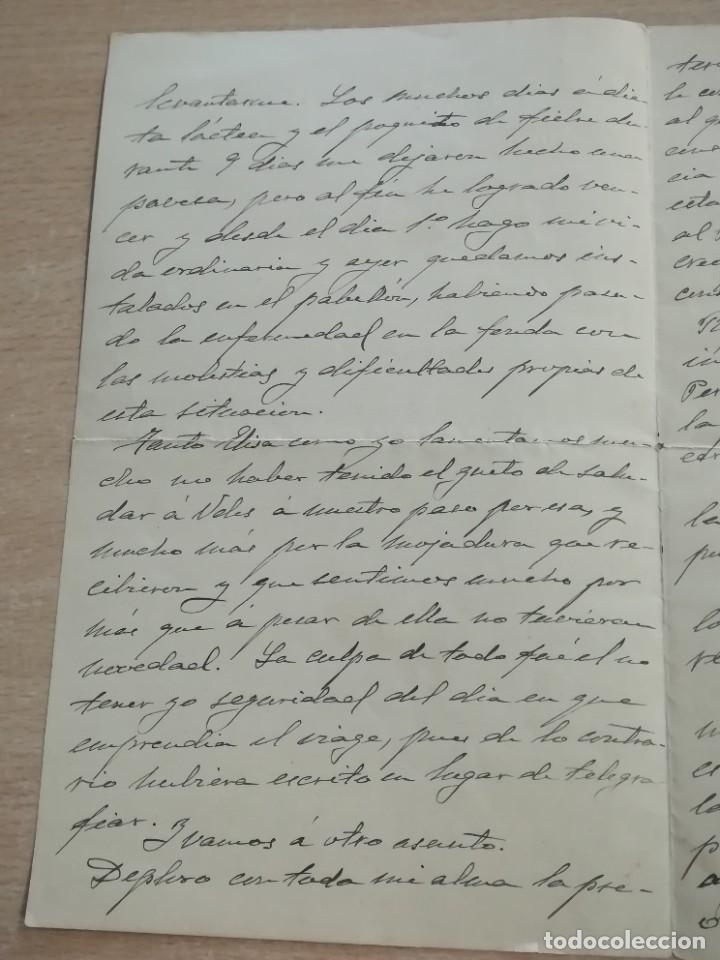 levantarme. Los muchos dias á die
ta láctea y el poquito de fiebre du-
rante 9 dias me dejaron hecho una
pavesa, pero al fin he logrado ven-
cer y desde el dia 1.º hago mi vi-
da ordinaria y ayer quedamos ins-
talados en el pabellón, habiendo pasa-
do la enfermedad en la fonda con
las molestias y dificultades propias de
esta situacion.
Tanto Elisa como yo lamentamos mu-
cho no haber tenido el gusto de salu-
dar á Vdes á nuestro paso por esa, y
mucho más por la mojadura que re-
cibieron y que sentimos mucho por
más que á pesar de ella no tuvieran
novedad. La culpa de todo fué el no
tener yo seguridad del dia en que
emprendia el viage, pues de lo contra-
rio hubiera escrito en lugar de telegra
fiar. Y vamos á otro asunto.
Deploro con toda mi alma la pre-
todocoleccion
todocoleccion.net